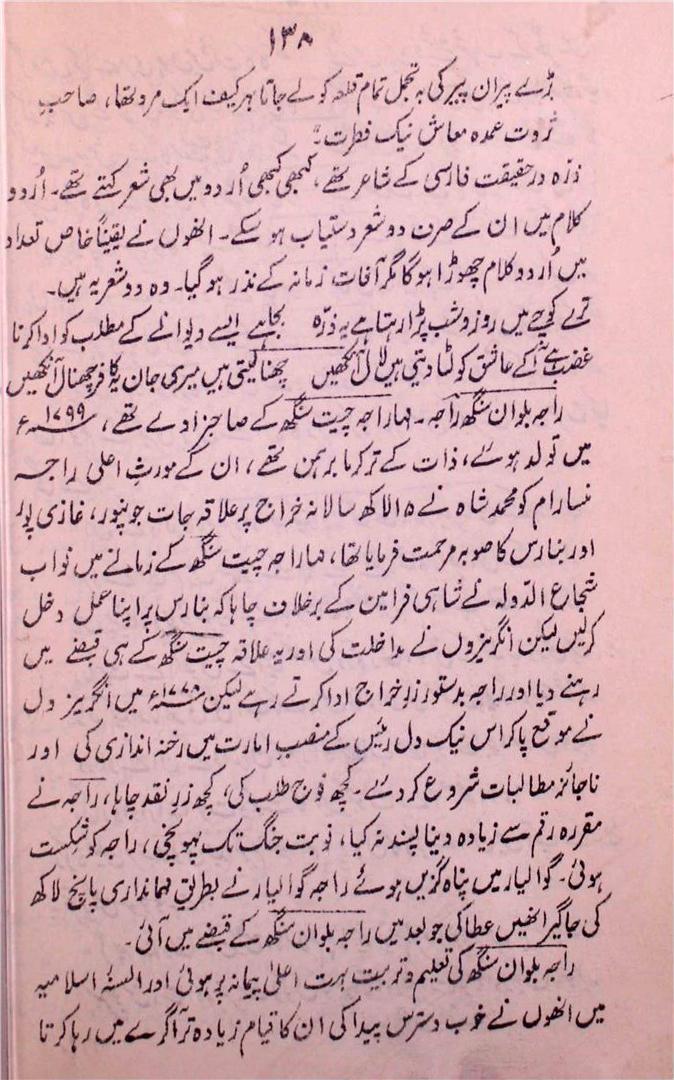 ۱۳۸
بڑے پیران پیر کی بہ تجمل تمام قلعہ کو لے جاتا بہر کیف ایک مرد تھا، صاحبِ
ثروت عمدہ معاش نیک فطرت۔"
ذرّہ درحقیقت فارسی کے شاعر تھے، کبھی کبھی اُردو میں بھی شعر کہتے تھے۔ اُردو
کلام میں ان کے صرف دو شعر دستیاب ہو سکے۔ انھوں نے یقیناً خاص تعداد
میں اُردو کلام چھوڑا ہوگا مگر آفات زمانہ کے نذر ہو گیا۔ وہ دو شعر یہ ہیں۔
ترے کوچے میں روز و شب پڑا رہتا ہے یہ ذرّہ بجا ہے ایسے دیوانے کے مطلب کو ادا کرنا
غضب ہے آ کے عاشق کو لٹا دیتی ہیں لال آنکھیں چھنا لیتی ہیں میری جان یہ کافر چھنال آنکھیں
راجہ بلوان سنگھ راجہ۔ مہاراجہ چیت سنگھ کے صاحبزادے تھے، ۱۷۹۹ء
میں تولد ہوئے، ذات کے ترکرما برہمن تھے، ان کے مورثِ اعلی راجہ
منسارام کو محمد شاہ نے ۱۵ لاکھ سالانہ خراج پر علاقہ جات جونپور، غازی پور
اور بنارس کا صوبہ مرحمت فرمایا تھا، مہاراجہ چیت سنگھ کے زمانے میں نواب
شجاع الدّولہ نے شاہی فرامین کے برخلاف چاہا کہ بنارس پر اپنا عمل دخل
کر لیں لیکن انگریزوں نے مداخلت کی اور یہ علاقہ چیت سنگھ کے ہی قبضے میں
رہنے دیا اور راجہ بدستور زرِ خراج ادا کرتے رہے لیکن ۱۷۷۰ء میں انگریز دل
نے موقع پا کر اس نیک دل رئیس کے منصبِ امارت میں رخنہ اندازی کی اور
ناجائز مطالبات شروع کر دئے۔ کچھ فوج طلب کی، کچھ زرِ نقد چاہا، راجہ نے
مقررہ رقم سے زیادہ دینا پسند نہ کیا، نوبت جنگ تک پہونچی، راجہ کو شکست
ہوئی۔ گوالیار میں پناہ گزیں ہوئے راجہ گوالیار نے بطریقِ مہمانداری پانچ لاکھ
کی جاگیر انھیں عطا کی جو بعد میں راجہ بلوان سنگھ کے قبضے میں آئی۔
راجہ بلوان سنگھ کی تعلیم و تربیت بہت اعلیٰ پیمانہ پر ہوئی اور السنۂ اسلامیہ
میں انھوں نے خوب دسترس پیدا کی ان کا قیام زیادہ تر آگرے میں رہا کرتا